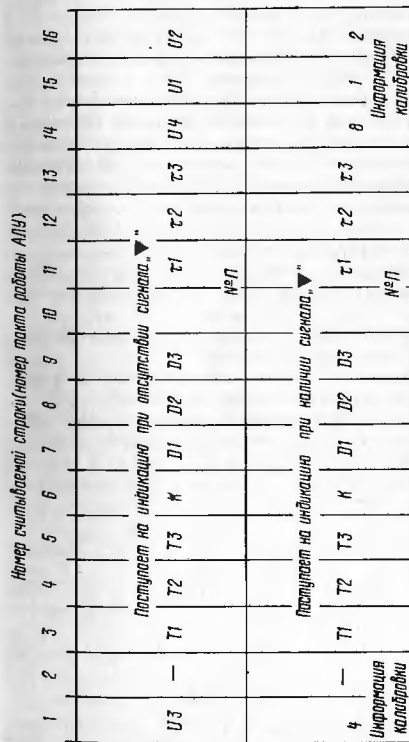 Номер считываемой строки (номер такта работы АЛУ)
1 2 3 4 5 6 7 8 9 10 11 12 13 14 15 16
Поступает на индикацию при отсутствии сигнала „▼“
U3 — T1 T2 T3 K D1 D2 D3 τ1 τ2 τ3 U4 U1 U2
№П
Поступает на индикацию при наличии сигнала „▼“
4 — T1 T2 T3 K D1 D2 D3 τ1 τ2 τ3 8 1 2
№П
Информация
калибровки
Информация
калибровки